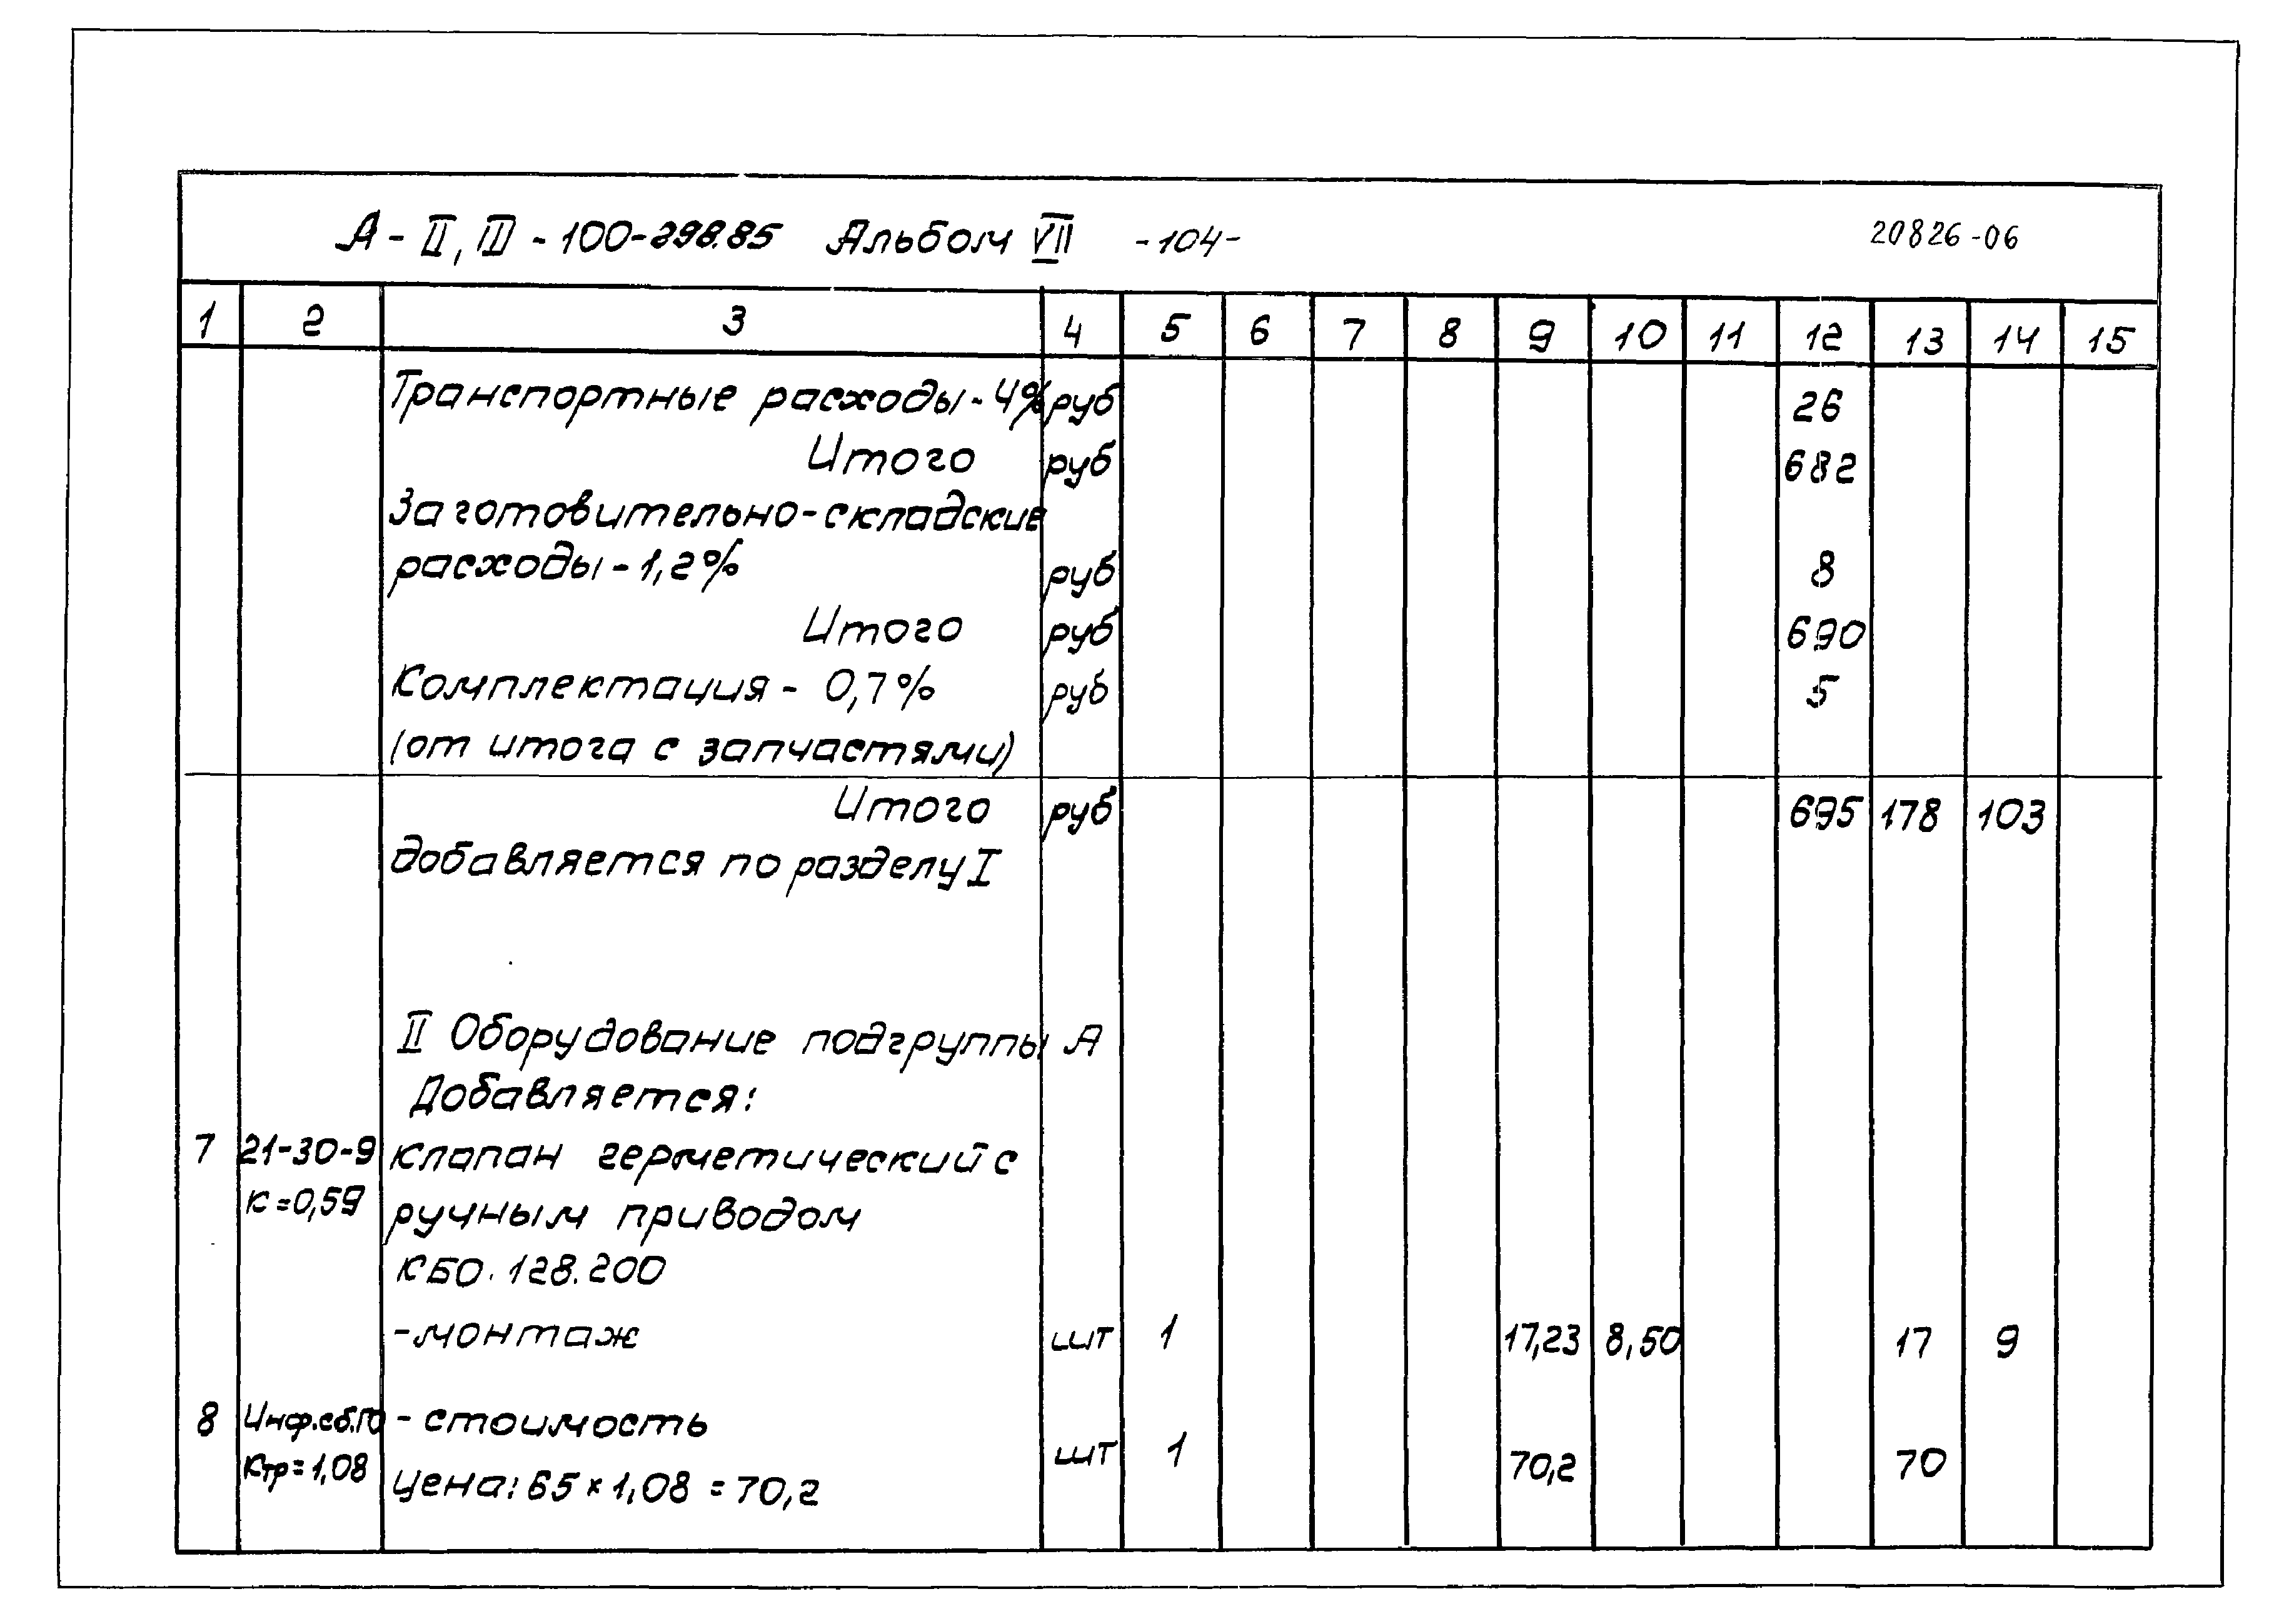 А-II,III-100-298.85 Альбом VII -104- 20826-06
1 2 3 4 5 6 7 8 9 10 11 12 13 14 15
Транспортные расходы-4% руб 26
Итого руб 682
Заготовительно-складские
расходы-1,2% руб 8
Итого руб 690
Комплектация- 0,7% руб 5
(от итога с запчастями)
Итого руб 695 178 103
добавляется по разделу I
II Оборудование подгруппы А
Добавляется:
7 21-30-9 клапан герметический с
к=0,59 ручным приводом
КБО.128.200
-монтаж шт 1 17,23 8,50 17 9
8 Инф.сб.ГО - стоимость
Ктр=1,08 цена: 65×1,08=70,2 шт 1 70,2 70